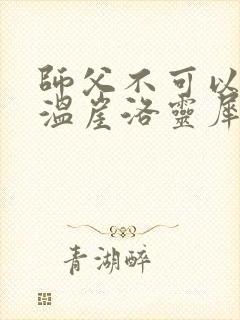 師父不可以
溫崖洛靈犀
青湖醉